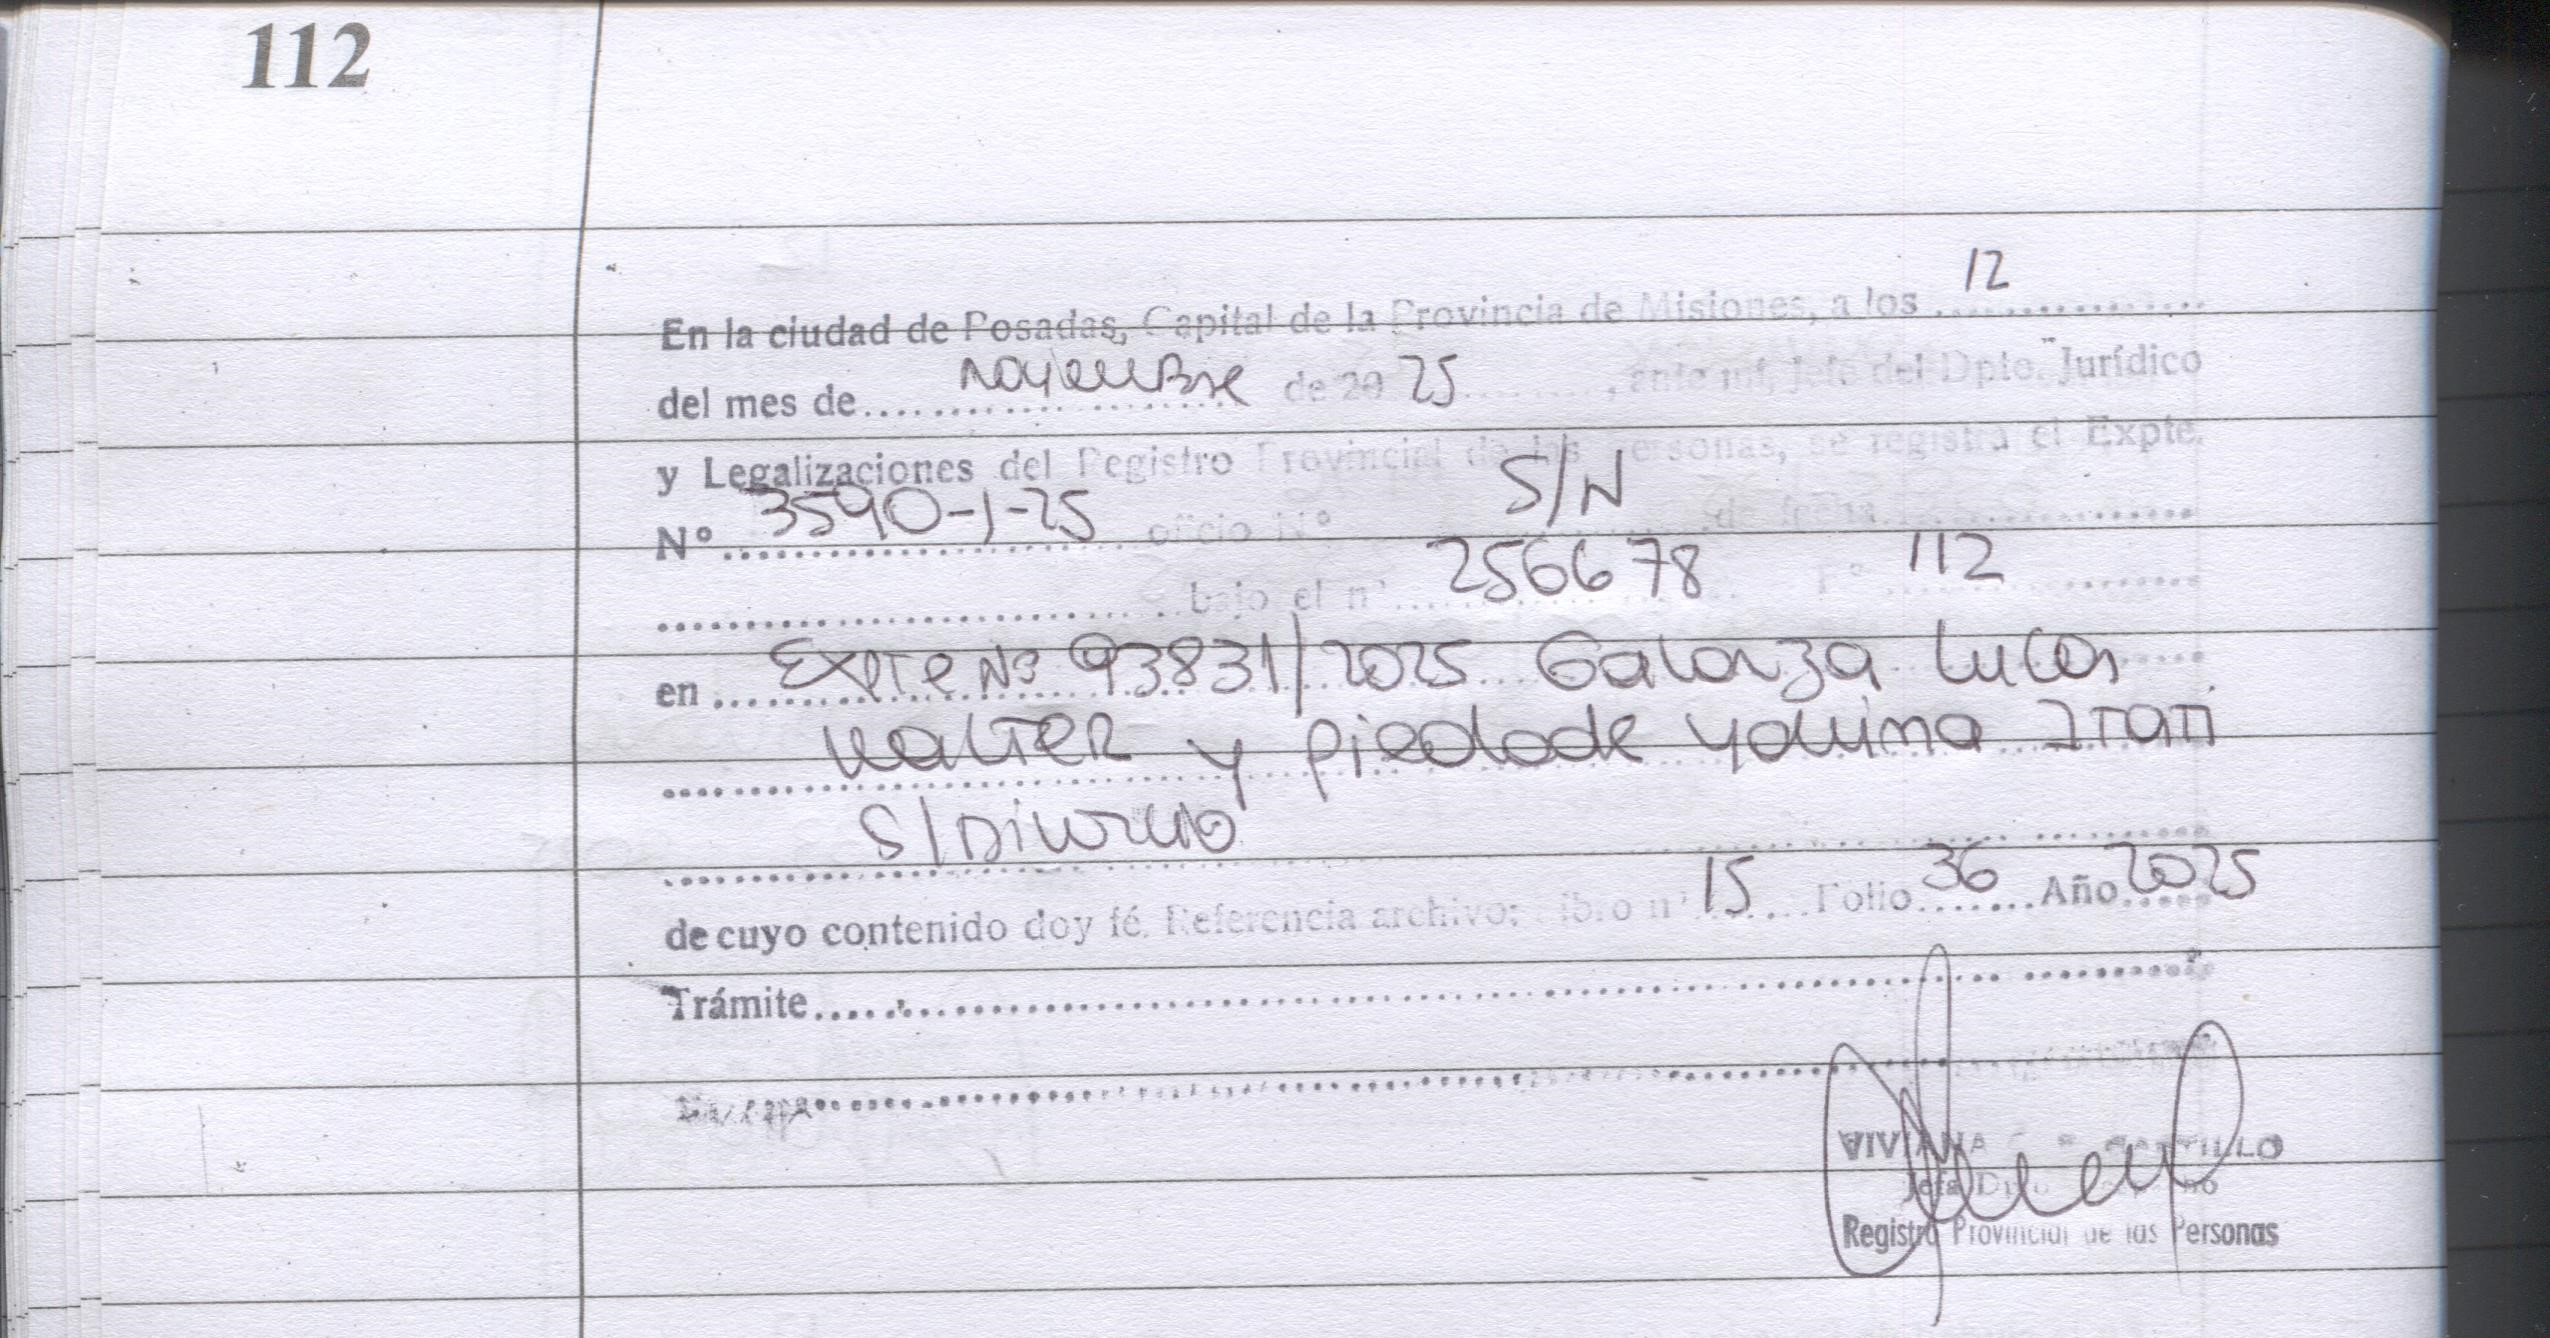 112
En la ciudad de Posadas, Capital de la Provincia de Misiones, a los 12
del mes de noviembre de 20 25, ante mí, Jefe del Dpto. Jurídico
y Legalizaciones del Registro Provincial de las Personas, se registra el Expte.
N° 3590-J-25 oficio N° S/N de fecha
bajo el n° 256678 F° 112
en Expte Nº 93831/2025 Galarza Lucas
Walter y Piedade Yohima Itati
S/Divorcio
de cuyo contenido doy fé. Referencia archivo: Libro n° 15 Folio 36 Año 2025
Trámite
VIVIANA
Registro Provincial de las Personas